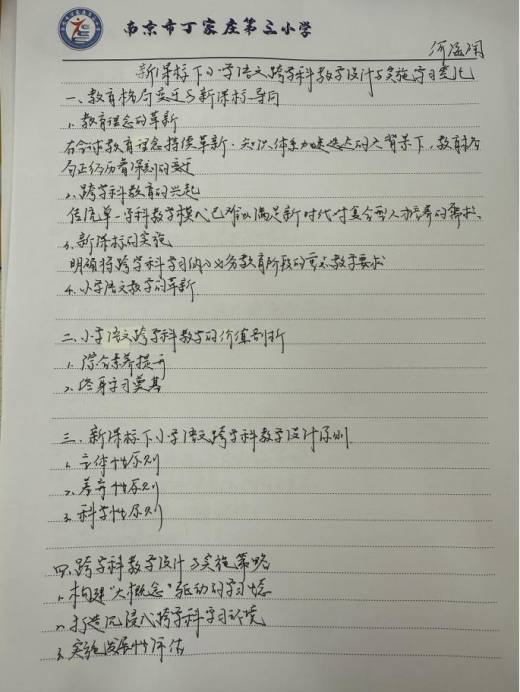 南京市丁家庄第三小学
新课标下小学语文跨学科教学设计与实施学习
一、教育格局变迁与新课标导向
1. 教育理念的革新
在全球教育理念持续革新、知识体系加速迭代的大背景下,教育格
局正经历着深刻的变迁
2. 跨学科教育的兴起
传统单一学科教学模式已难以满足新时代对复合型人才培养的需求。
3. 新课标的实施
明确将跨学科学习纳入义务教育阶段的重要教学要求
4. 小学语文教学的革新
二、小学语文跨学科教学的价值剖析
1. 综合素养提升
2. 终身学习奠基
三、新课标下小学语文跨学科教学设计原则
1. 主体性原则
2. 差异性原则
3. 科学性原则
四、跨学科教学设计与实施策略
1. 构建“大概念”驱动的学习
2. 打造沉浸式跨学科学习环境
3. 实施发展性评估